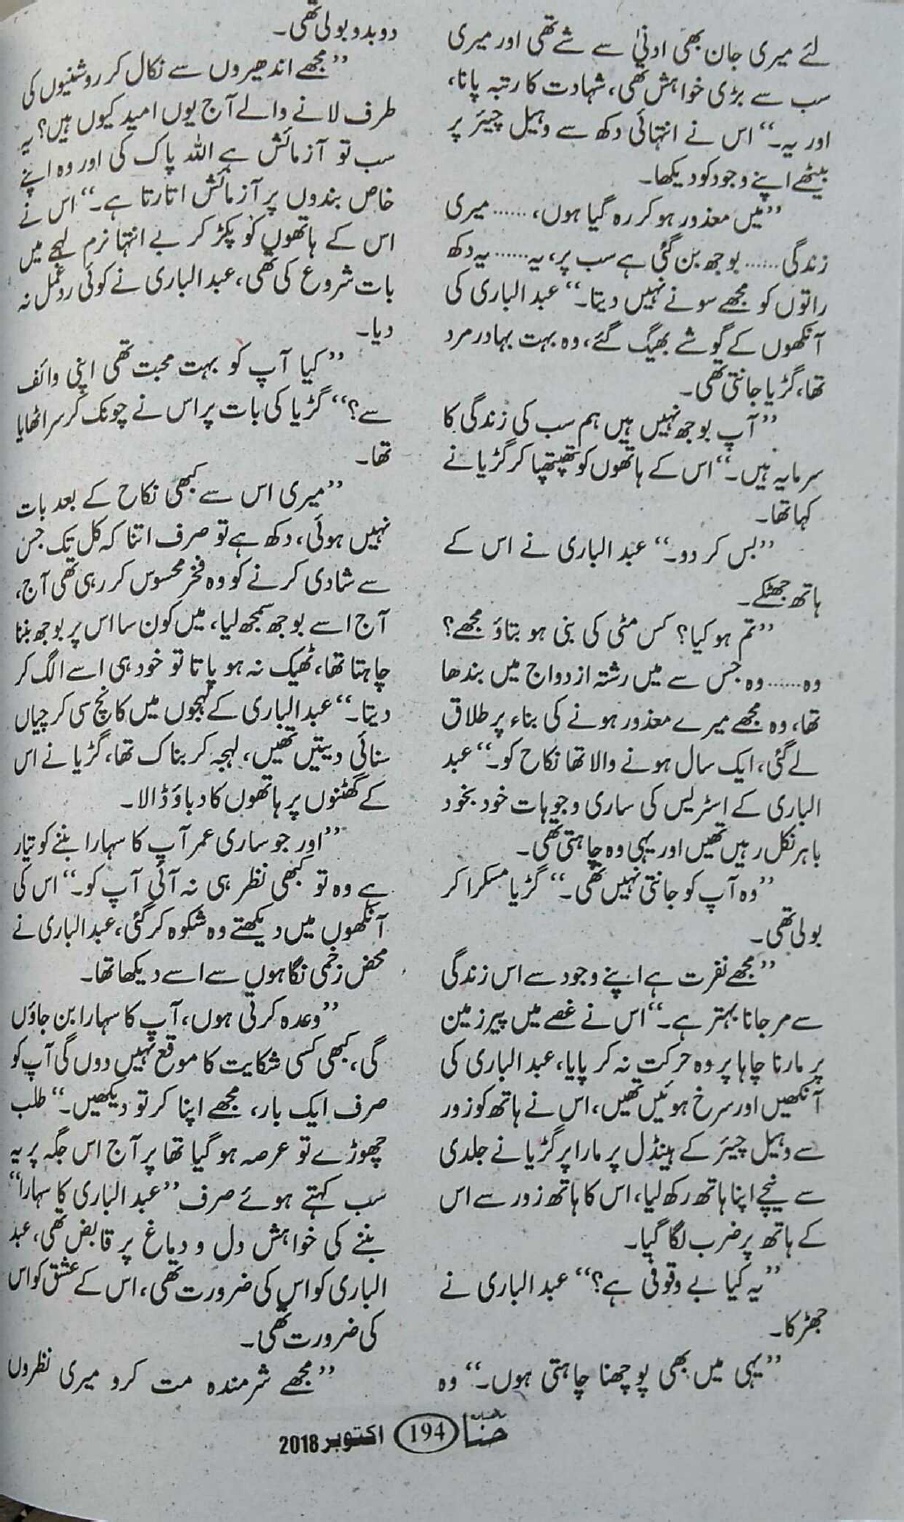 لئے میری جان بھی ادنیٰ سے شے تھی اور میری
سب سے بڑی خواہش تھی، شہادت کا رتبہ پانا،
اور یہ۔‘‘ اس نے انتہائی دکھ سے وہیل چیئر پر
بیٹھے اپنے وجود کو دیکھا۔
’’میں معذور ہو کر رہ گیا ہوں، ...... میری
زندگی ...... بوجھ بن گئی ہے سب پر، یہ ...... یہ دکھ
راتوں کو مجھے سونے نہیں دیتا۔‘‘ عبد الباری کی
آنکھوں کے گوشے بھیگ گئے، وہ بہت بہادر مرد
تھا، گڑیا جانتی تھی۔
’’آپ بوجھ نہیں ہیں ہم سب کی زندگی کا
سرمایہ ہیں۔‘‘ اس کے ہاتھوں کو تھپتھپا کر گڑیا نے
کہا تھا۔
’’بس کر دو۔‘‘ عبد الباری نے اس کے
ہاتھ جھٹکے۔
’’تم ہو کیا؟ کس مٹی کی بنی ہو بتاؤ مجھے؟
وہ ...... وہ جس سے میں رشتہ ازدواج میں بندھا
تھا، وہ مجھے میرے معذور ہونے کی بناء پر طلاق
لے گئی، ایک سال ہونے والا تھا نکاح کو۔‘‘ عبد
الباری کے اسٹریس کی ساری وجوہات خود بخود
باہر نکل رہیں تھیں اور یہی وہ چاہتی تھی۔
’’وہ آپ کو جانتی نہیں تھی۔‘‘ گڑیا مسکرا کر
بولی تھی۔
’’مجھے نفرت ہے اپنے وجود سے اس زندگی
سے مر جانا بہتر ہے۔‘‘ اس نے غصے میں پیر زمین
پر مارنا چاہا پر وہ حرکت نہ کر پایا، عبد الباری کی
آنکھیں اور سرخ ہوئیں تھیں، اس نے ہاتھ کو زور
سے وہیل چیئر کے ہینڈل پر مارا پر گڑیا نے جلدی
سے نیچے اپنا ہاتھ رکھ لیا، اس کا ہاتھ زور سے اس
کے ہاتھ پر ضرب لگا گیا۔
’’یہ کیا بے وقوفی ہے؟‘‘ عبد الباری نے
جھڑکا۔
’’یہی میں بھی پوچھنا چاہتی ہوں۔‘‘ وہ
دوبدو بولی تھی۔
’’مجھے اندھیروں سے نکال کر روشنیوں کی
طرف لانے والے آج یوں امید کیوں ہیں؟ یہ
سب تو آزمائش ہے اللہ پاک کی اور وہ اپنے
خاص بندوں پر آزمائش اتارتا ہے۔‘‘ اس نے
اس کے ہاتھوں کو پکڑ کر بے انتہا نرم لہجے میں
بات شروع کی تھی، عبد الباری نے کوئی ردعمل نہ
دیا۔
’’کیا آپ کو بہت محبت تھی اپنی وائف
سے؟‘‘ گڑیا کی بات پر اس نے چونک کر سر اٹھایا
تھا۔
’’میری اس سے کبھی نکاح کے بعد بات
نہیں ہوئی، دکھ ہے تو صرف اتنا کہ کل تک جس
سے شادی کرنے کو وہ فخر محسوس کر رہی تھی آج،
آج اسے بوجھ سمجھ لیا، میں کون سا اس پر بوجھ بننا
چاہتا تھا، ٹھیک نہ ہو پاتا تو خود ہی اسے الگ کر
دیتا۔‘‘ عبد الباری کے لہجوں میں کانچ سی کرچیاں
سنائی دیتیں تھیں، لہجہ کربناک تھا، گڑیا نے اس
کے گھٹنوں پر ہاتھوں کا دباؤ ڈالا۔
’’اور جو ساری عمر آپ کا سہارا بننے کو تیار
ہے وہ تو کبھی نظر ہی نہ آئی آپ کو۔‘‘ اس کی
آنکھوں میں دیکھتے وہ شکوہ کر گئی، عبد الباری نے
محض زخمی نگاہوں سے اسے دیکھا تھا۔
’’وعدہ کرتی ہوں، آپ کا سہارا بن جاؤں
گی، کبھی کسی شکایت کا موقع نہیں دوں گی آپ کو
صرف ایک بار، مجھے اپنا کر تو دیکھیں۔‘‘ طلب
چھوڑے تو عرصہ ہو گیا تھا پر آج اس جگہ پر یہ
سب کہتے ہوئے صرف ’’عبد الباری کا سہارا‘‘
بننے کی خواہش دل و دماغ پر قابض تھی، عبد
الباری کو اس کی ضرورت تھی، اس کے عشق کو اس
کی ضرورت تھی۔
’’مجھے شرمندہ مت کرو میری نظروں
حنا 194 اکتوبر 2018